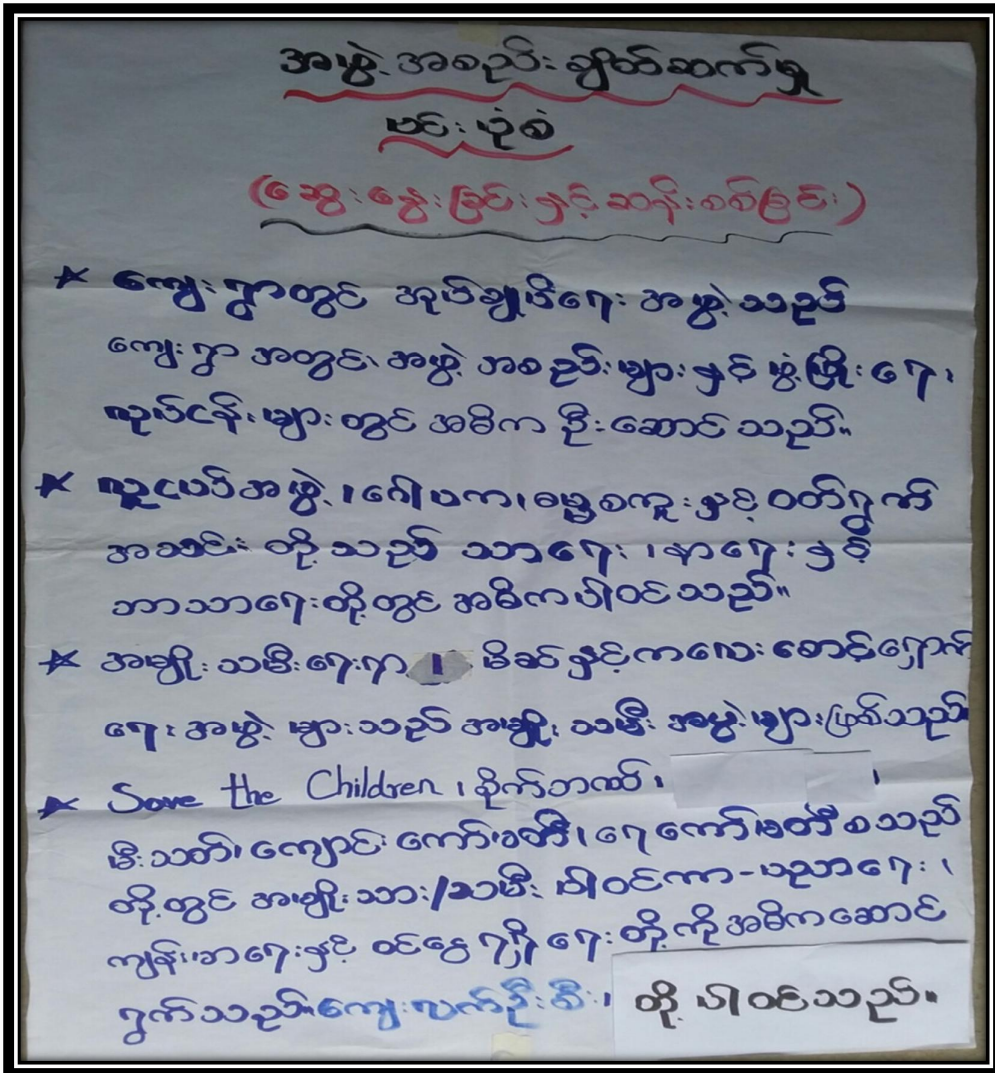 အဖွဲ့အစည်းချိတ်ဆက်မှု
ပင်းပုံစံ
(ဆွေးနွေးခြင်းနှင့်ဆန်းစစ်ခြင်း)
* ကျေးရွာတွင် အုပ်ချုပ်ရေး အဖွဲ့သည်
ကျေးရွာ အတွင်း၊ အဖွဲ့ အစည်းများနှင့် ဖွံ့ဖြိုးရေး
လုပ်ငန်းများတွင် အဓိက ဦးဆောင်သည်။
* လူငယ်အဖွဲ့၊ ဂေါပက၊ ဓမ္မစကူးနှင့် ဝတ်ရွတ်
အသင်း တို့သည် သာရေး၊ နာရေးနှင့်
ဘာသာရေးတို့တွင် အဓိကပါဝင်သည်။
* အမျိုးသမီးရေးရာ ၊ မိခင်နှင့်ကလေးစောင့်ရှောက်
ရေးအဖွဲ့များသည် အမျိုးသမီး အဖွဲ့များဖြစ်သည်
* Save the Children ၊ စိုက်ဘဏ်၊ ၊
မီးသတ်၊ ကျောင်းကော်မတီ၊ ရေကော်မတီ စသည်
တို့တွင် အမျိုးသား/သမီး ပါဝင်ကာ-ပညာရေး၊
ကျန်းမာရေးနှင့် ဝင်ငွေ ရရှိရေးတို့ကို အဓိကဆောင်
ရွက်သည်။ကျေးလက်ဦးစီး၊ တို့ ပါဝင်သည်။